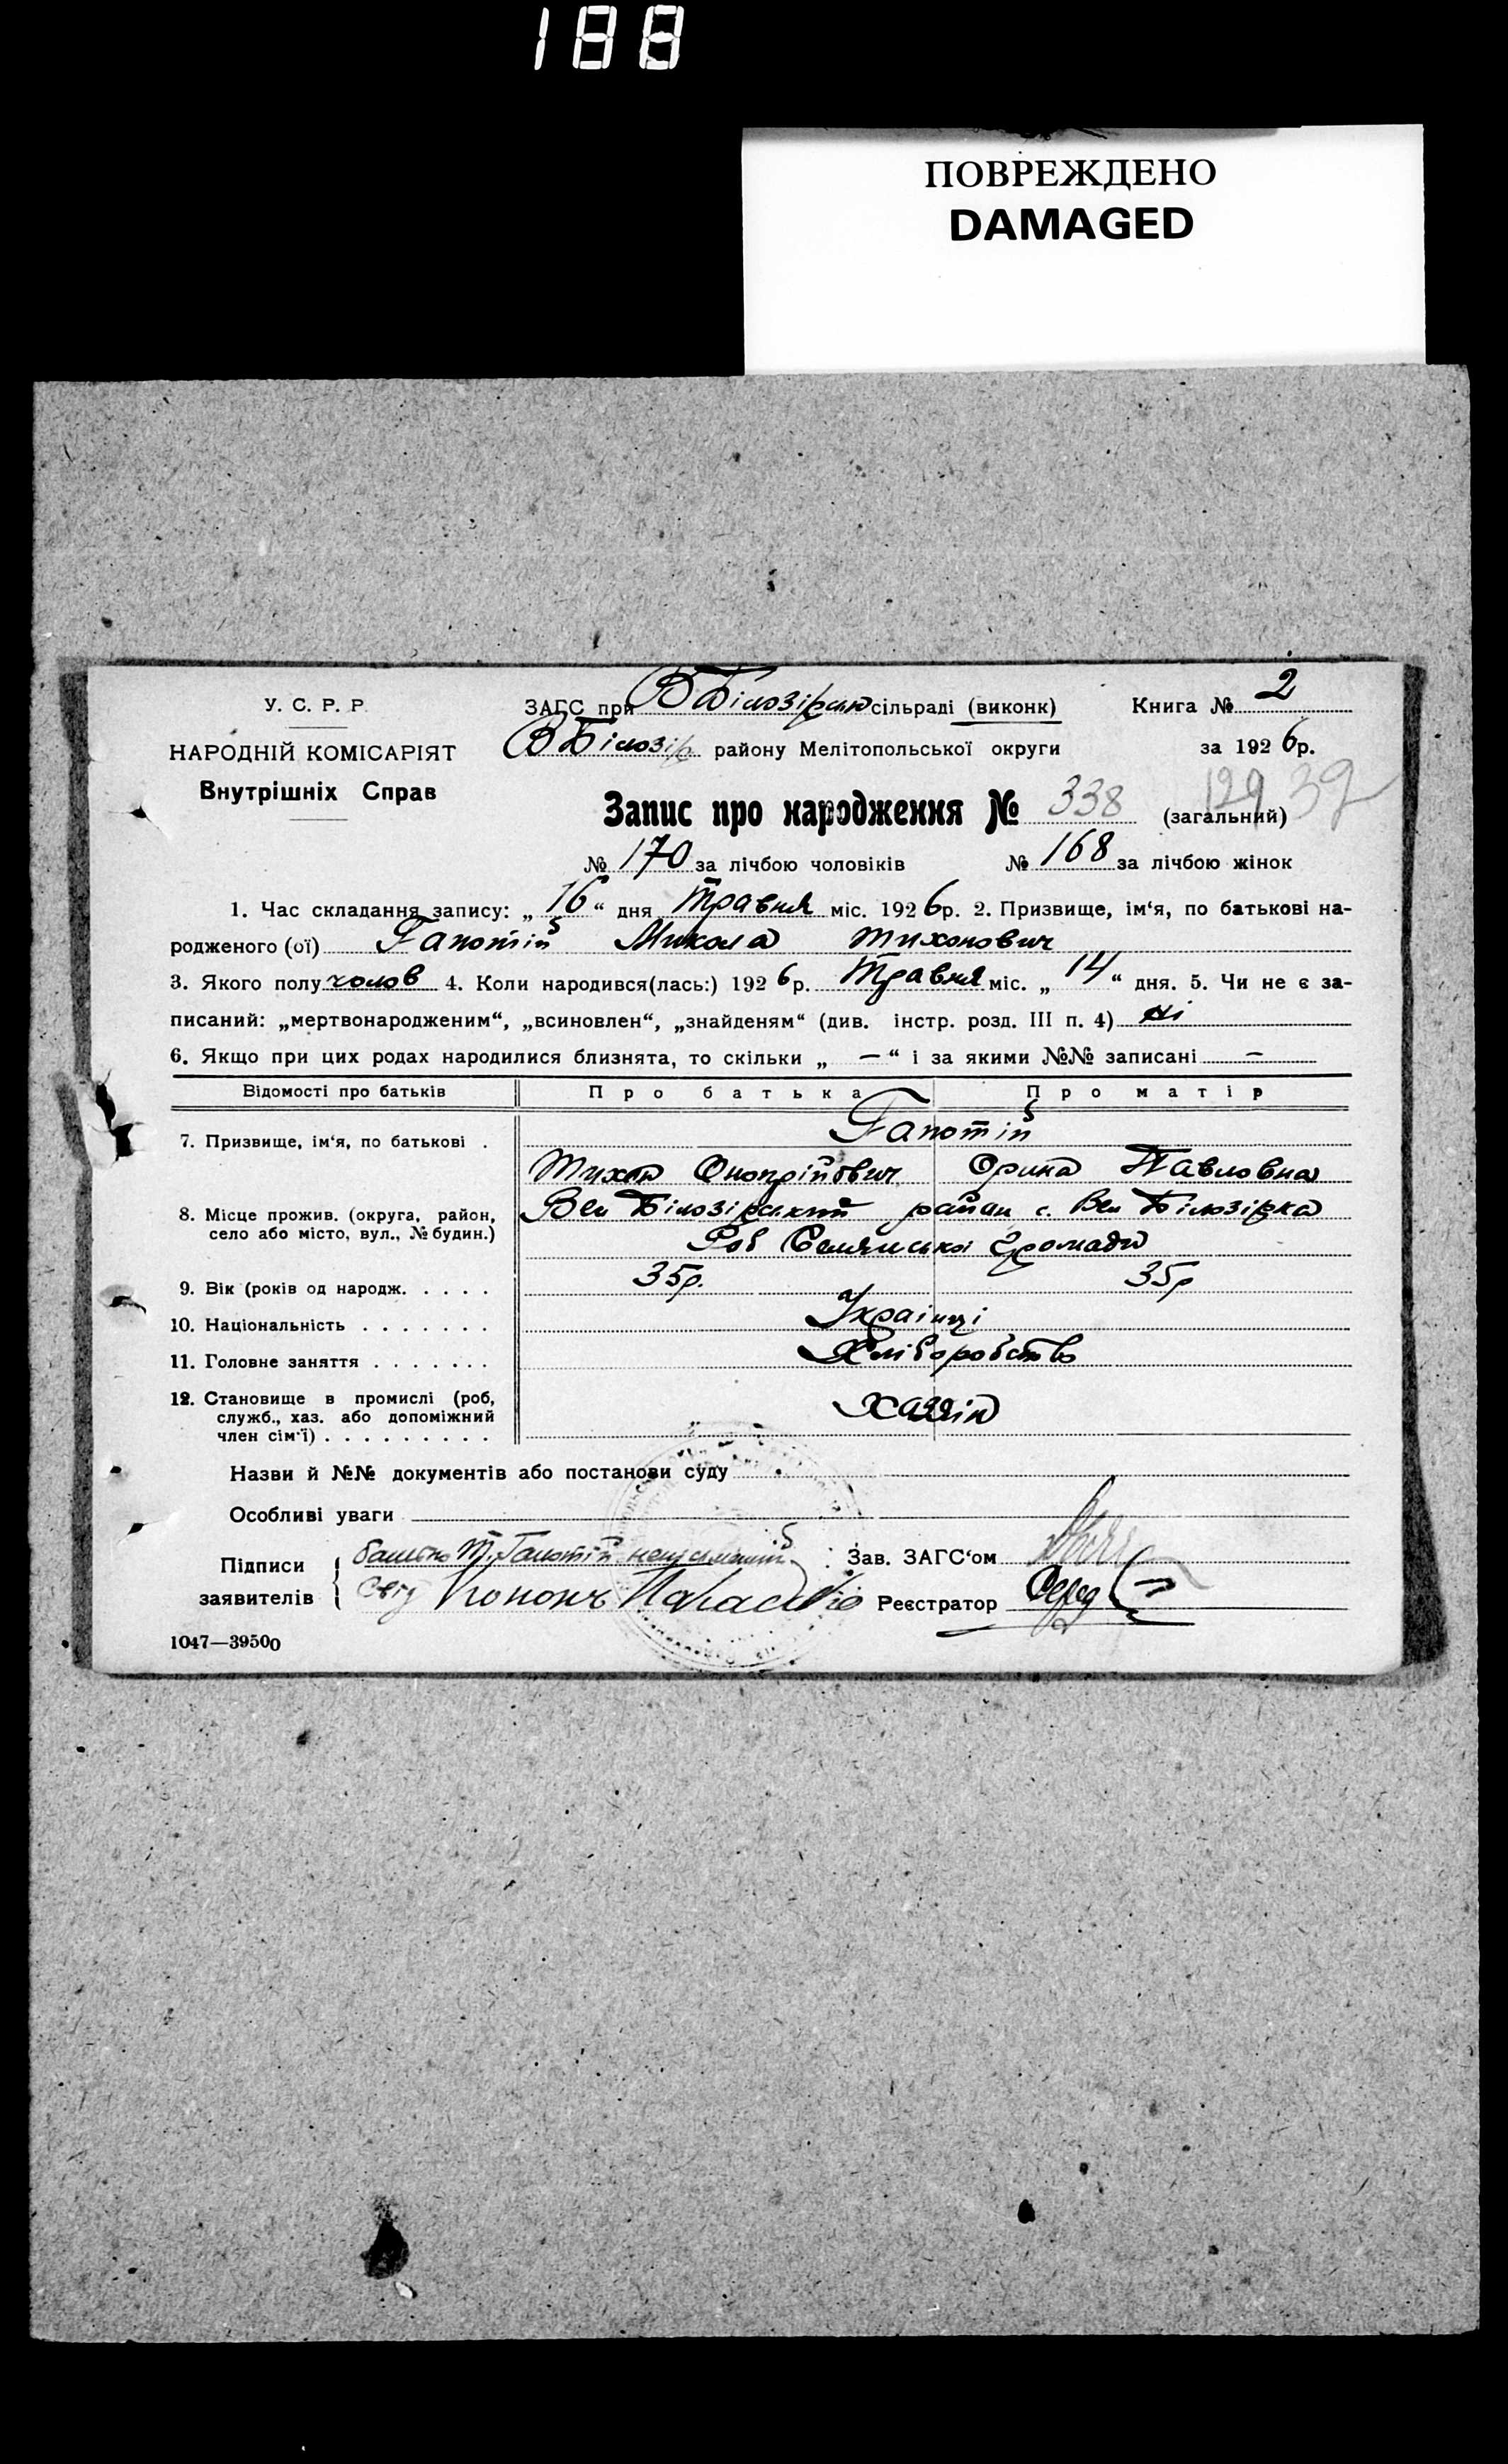 188
ПОВРЕЖДЕНО
DAMAGED
У. С. Р. Р.
НАРОДНІЙ КОМІСАРІЯТ
Внутрішніх Справ
ЗАГС при В Білозірськ сільраді (виконк) Книга № 2
В Білозір району Мелітопольської округи за 1926 р.
129 39
Запис про народження № 338 (загальний)
№ 170 за лічбою чоловіків № 168 за лічбою жінок
1. Час складання запису: „16“ дня Травня міс. 1926 р. 2. Призвище, ім‘я, по батькові на-
родженого (ої) Гапотій Микола Тихонович
3. Якого полу чолов 4. Коли народився(лась:) 1926 р. Травня міс. „14“ дня. 5. Чи не є за-
писаний: „мертвонародженим“, „всиновлен“, „знайденям“ (див. інстр. розд. III п. 4) ні
6. Якщо при цих родах народилися близнята, то скільки „ — “ і за якими №№ записані —
Відомості про батьків Про батька Про матір
7. Призвище, ім‘я, по батькові . Гапотій
Тихон Онопрійович Орина Павловна
8. Місце прожив. (округа, район, Вел Білозірський район с. Вел Білозірка
село або місто, вул., № будин.) Селянської громади
9. Вік (років од народж. . . . . 35р. 35р
10. Національність . . . . . . . Українці
11. Головне заняття . . . . . . . Хліборобство
12. Становище в промислі (роб, Хазяін
служб., хаз. або допоміжний
член сім‘ї) . . . . . . . . .
Назви й №№ документів або постанови суду
Особливі уваги
Підписи батько Т. Гапотій неписьменний Зав. ЗАГС‘ом
заявителів свід Кононъ Реєстратор
1047—39500